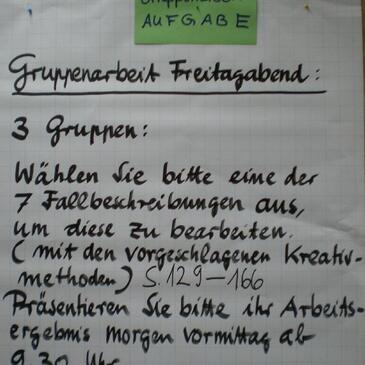 AUFGABE
Gruppenarbeit Freitagabend:
3 Gruppen:
Wählen Sie bitte eine der
7 Fallbeschreibungen aus,
um diese zu bearbeiten.
(mit den vorgeschlagenen Kreativ-
methoden) S. 129–166
Präsentieren Sie bitte ihr Arbeits-
ergebnis morgen vormittag ab
9.30 Uhr